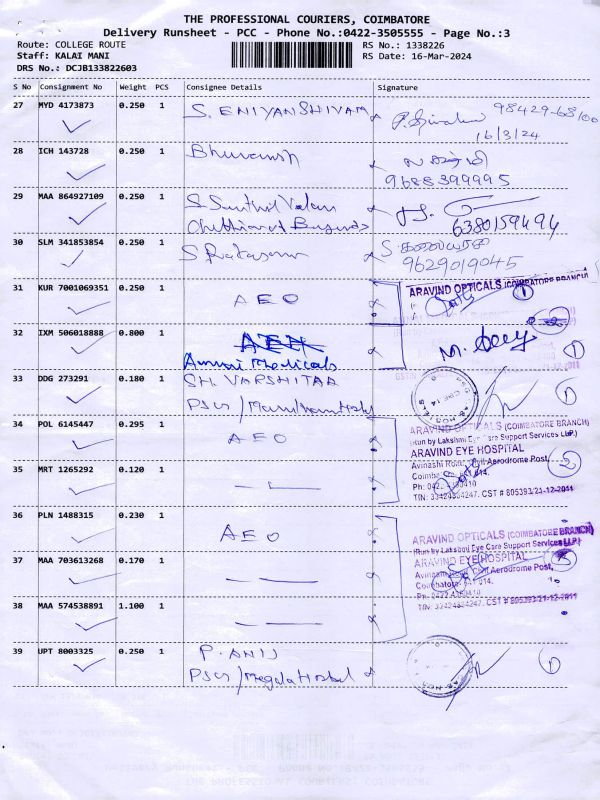 THE PROFESSIONAL COURIERS, COIMBATORE
Delivery Runsheet - PCC - Phone No.:0422-3505555 - Page No.:3
Route: COLLEGE ROUTE
RS No.: 1338226
Staff: KALAI MANI
RS Date: 16-Mar-2024
DRS No.: DCJB133822603
S No Consignment No Weight PCS Consignee Details Signature
27 MYD 4173873 0.250 1 S. ENIYANSHIVAM
98429-68100
16/3/24
28 ICH 143728 0.250 1
9688399995
29 MAA 864927109 0.250 1 S Senthil Velan
6380159494
30 SLM 341853854 0.250 1
9629019045
31 KUR 7001069351 0.250 1 AEO
ARAVIND OPTICALS (COIMBATORE BRANCH)
1
32 IXM 506018888 0.800 1
Ammai Medicals
1
33 DDG 273291 0.180 1 SH. VARSHITAA
PSG /
1
34 POL 6145447 0.295 1 AEO
ARAVIND OPTICALS (COIMBATORE BRANCH)
(Run by Lakshmi Eye Care Support Services LLP.)
ARAVIND EYE HOSPITAL
Avinashi Road, Civil Aerodrome Post,
2
35 MRT 1265292 0.120 1
TIN: 33424384247. CST # 805393/21-12-2011
36 PLN 1488315 0.230 1 AEO
ARAVIND OPTICALS (COIMBATORE BRANCH)
(Run by Lakshmi Eye Care Support Services LLP.)
ARAVIND EYE HOSPITAL
37 MAA 703613268 0.170 1
38 MAA 574538891 1.100 1
39 UPT 8003325 0.250 1 P. ANIJ
PSG / Megala Hostel
1